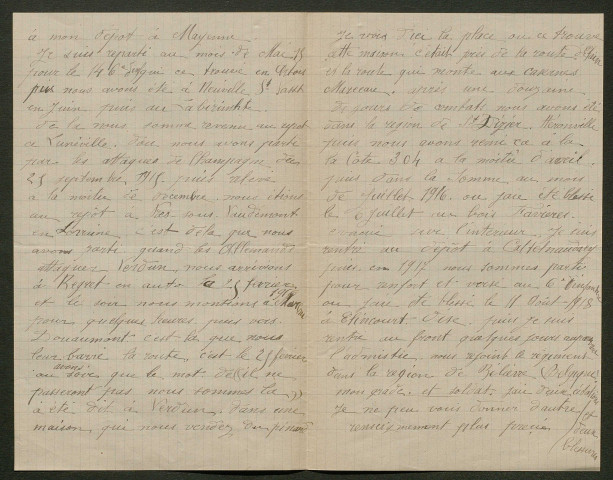 à mon dépôt à Mayenne.
Je suis reparti au mois de Mai 15
pour le 146e qui ce trouve en Artois
puis nous avons été à Neuville St Vaast
en Juin puis au Labirinthe
de la nous somme revenu au repot
a Lunéville. D'ou nous avons parti
par les attaques de Champagne du
25 septembre 1915 puis relevé
a la moitié de décembre nous étions
au repot à sous Vaudémont
en Lorraine c'est de la que nous
avons parti quand les Allemands
attaquer Verdun nous arrivons
à Regret en auto le 25 fevrier
1916
et le soir nous montions à
pour quelques heures puis vers
Douaumont c'est la que nous
leur barré la route, c'est le 25 fevrier
au soir que le mot de ils ne
passeront pas nous sommes la ))
a été dit a Verdun, dans une
maison, qui nous vendez du pinard
Je vous dire la place ou ce trouve
cette maison c'était pres de la route d'
et la route qui monte aux casernes
Marceau. apres une douzaine
de jours de combats nous avons été
dans le region de St Dizier,
puis nous avons remonté a la
la Côte 304 a la moitié d'avril
puis dans la Somme au mois
de Juillet 1916 ou jai été blessé
le Juillet au bois Favières.
evacué sur l'interieur. Je suis
rentré au dépôt à Castelnaudary
puis en 1917 nous sommes parti
pour renfort et versé au 6e
ou jai été blessé le 11 Aout 1918
à Elincourt Oise. puis je suis
rentré au front quelques jours
l'admistice nous rejoint le regiment
dans la region de Belgique
mon grade et soldat, jai deux citations
et
deux
blessures
Je ne peu vous donner d'autre
renseignement plus